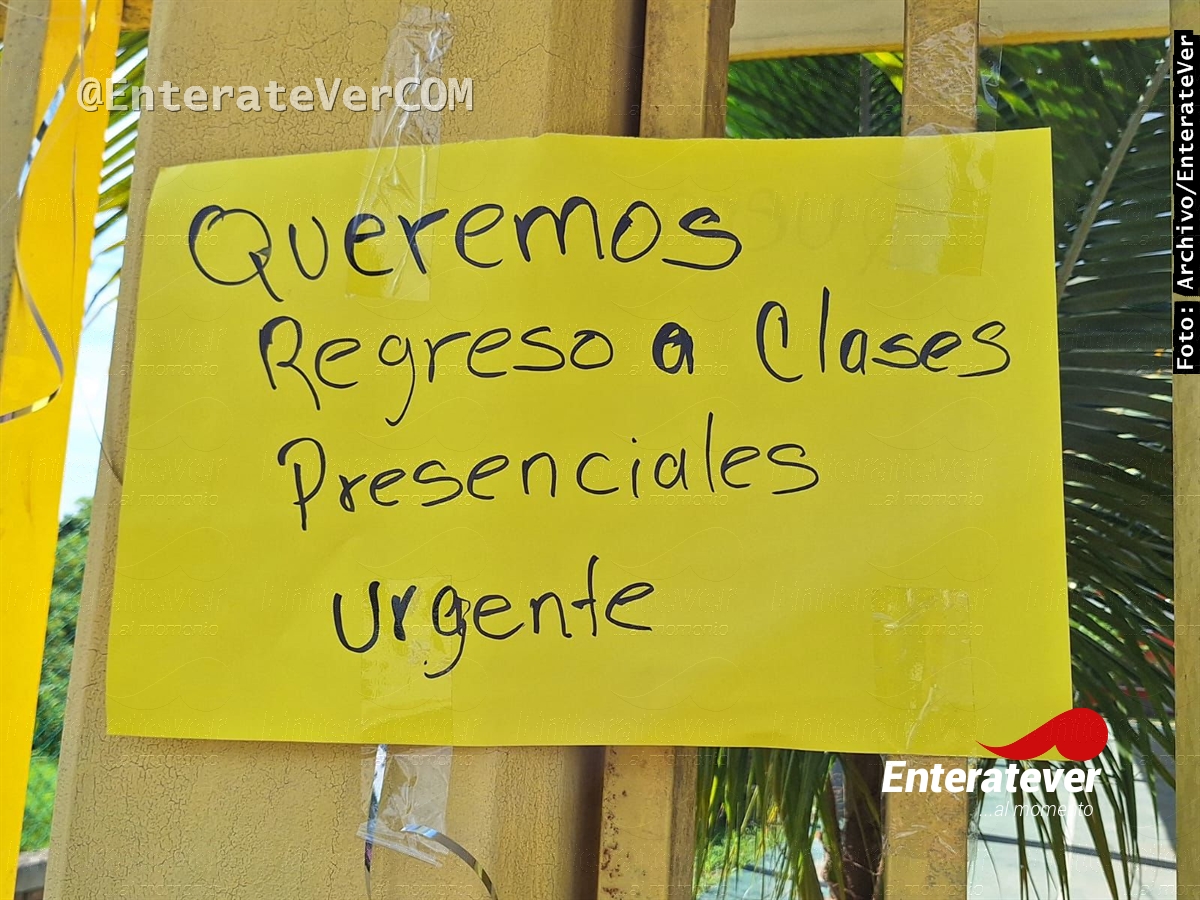 @EnterateVerCOM
Foto: Archivo/EnterateVer
Queremos
Regreso a Clases
Presenciales
urgente
Enteratever
...al momento